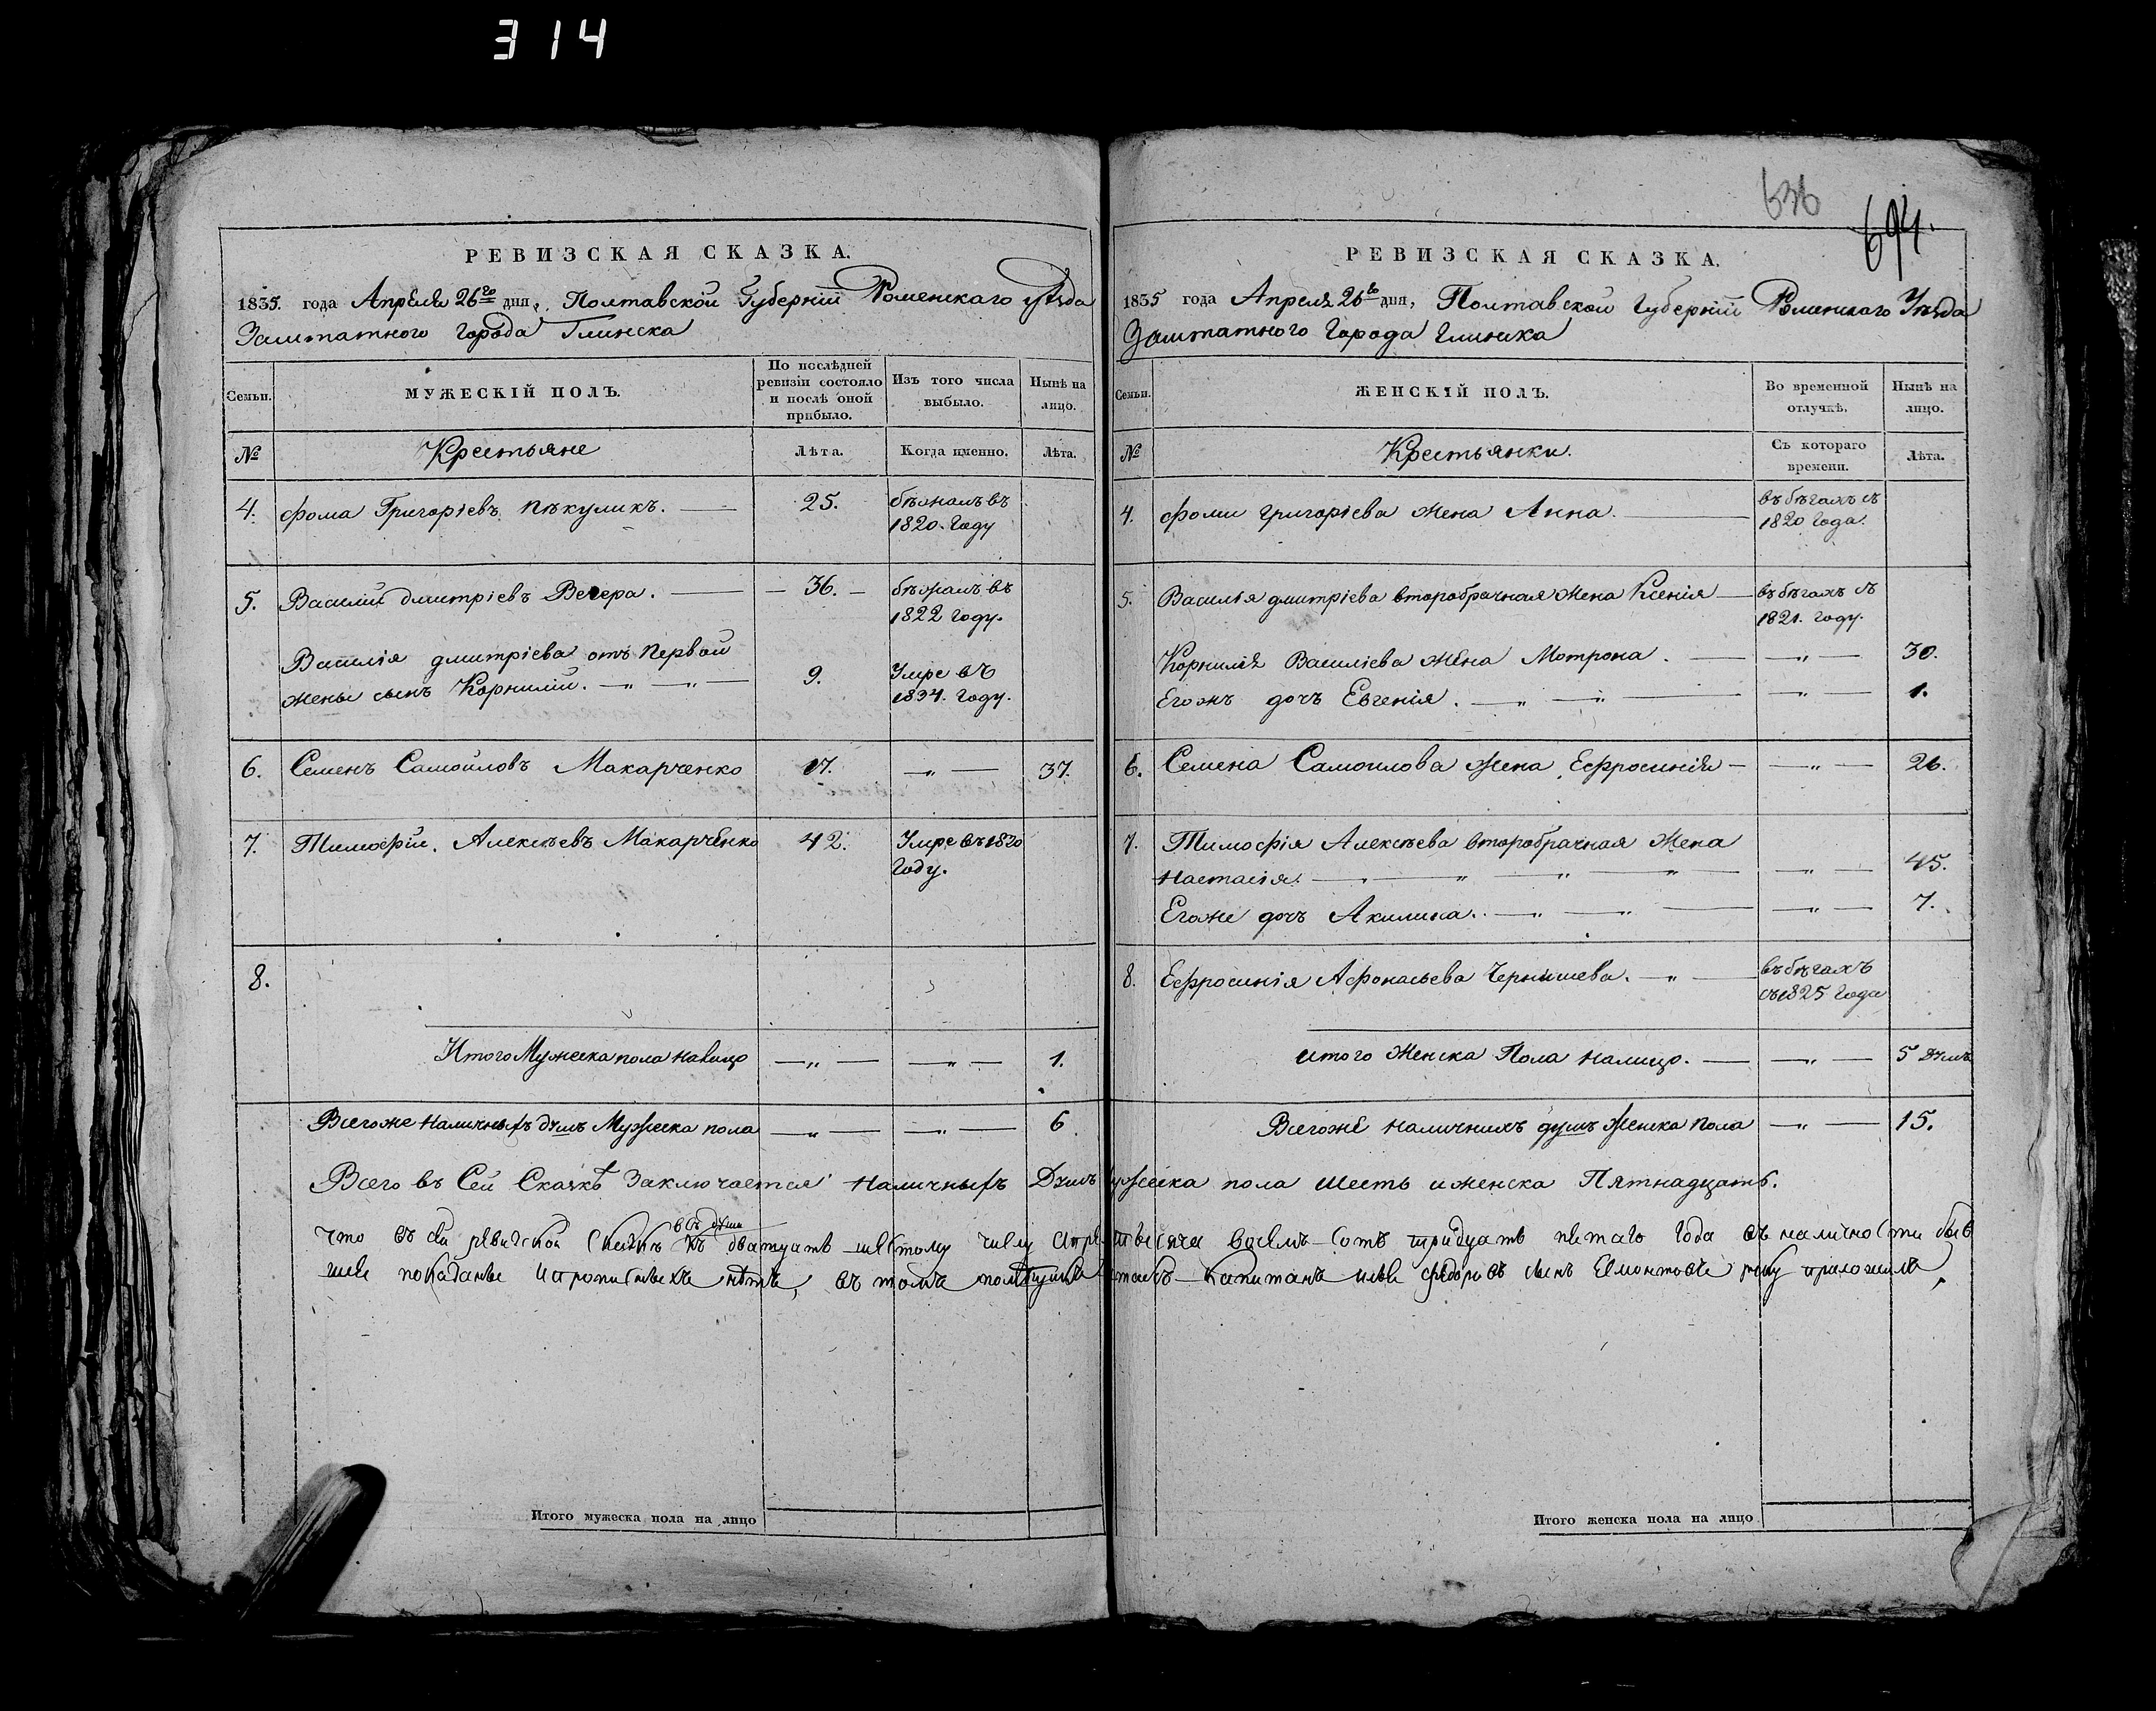 314
РЕВИЗСКАЯ СКАЗКА.
1835. года Апреля 26го дня, Полтавской Губернїи Роменскаго уѣзда
Заштатного Города Глинска
Семьи.
МУЖЕСКІЙ ПОЛЪ.
По послѣдней ревизіи состояло и послѣ оной прибыло.
Изъ того числа выбыло.
Нынѣ на лицо.
№ Крестьяне Лѣта. Когда именно. Лѣта.
4. Фома Григорїевъ Пѣкуликъ. — 25. бѣжалъ въ
1820. Году
5. Василий Дмитрїевъ Вечера. — 36. — бѣжалъ въ
1822 Году.
Василїя Дмитрїева отъ Первой
жены сынъ Корнилий. — „ — „ — 9. Умре въ
1834. Году.
6. Семенъ Самойловъ Макарченко 17. — „ — 37.
7. Тимофїй Алексѣевъ Макарченко 42. Умре въ 1820
Году.
8.
Итого Мужеска пола налицо — „ — — „ — 1.
Всегоже Наличныхъ душъ Мужеска пола — „ — — „ — 6
636
694.
РЕВИЗСКАЯ СКАЗКА.
1835 года Апреля 26го дня, Полтавской Губернїи Роменскаго Уѣзда
Заштатного Города Глинска
Семьи.
ЖЕНСКІЙ ПОЛЪ.
Во временной отлучкѣ.
Нынѣ на лицо.
№ Крестьянки. Съ котораго времени. Лѣта.
4. Фоми Григорїева жена Анна. — въ бѣгахъ съ
1820 Года.
5. Василья Дмитрїева второбрачная жена Ксенїя — въ бѣгахъ съ
1821. Году.
Корнилїя Василїева жена Мотрона. — — „ — 30.
Егожъ дочъ Евгенїя. — „ — „ — — „ — 1.
6. Семена Самоилова жена Ефросинїя — — „ — 26.
7. Тимофїя Алексѣева второбрачная жена
Настасїя. — „ — „ — „ — — „ — 45.
Егоже дочъ Акилина. — „ — „ — — „ — 7.
8. Ефросинїя Афонасьева Чернишева. — „ — въ бѣгахъ
съ 1825 Года
итого Женска Пола налицо. — — „ — 5 душъ
Всегоже наличнихъ душъ Женска пола — „ — 15.
Всего въ Сей Сказкѣ Заключается Наличныхъ Душъ Мужеска пола шесть и женска Пятнадцать.
всѣ души
что въ сей ревизской сказкѣ къ дватцать шестому числу восемъ-сотъ тридцать пятаго года въ наличности быв
шие показаны и прописныхъ нѣтъ, въ томъ Капитанъ Федоровъ сынъ руку приложилъ
Итого мужеска пола на лицо
Итого женска пола на лицо